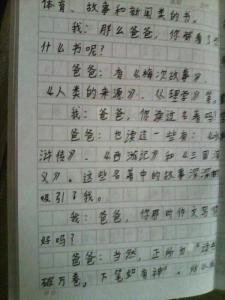 体育、故事和新闻类的书。
我：那么爸爸，你都看了些
什么书呢？
爸爸：看《梅次故事》
《人类的来源》、《心理学》等。
我：爸爸，你读过名著吗？
爸爸：也读过一些有：《水
浒传》、《西游记》和《三国
义》。这些名著中的故事深深
吸引了我。
我：爸爸，你那时作文写
好吗？
爸爸：当然，正所谓"读书
破万卷，下笔如有神"。所以